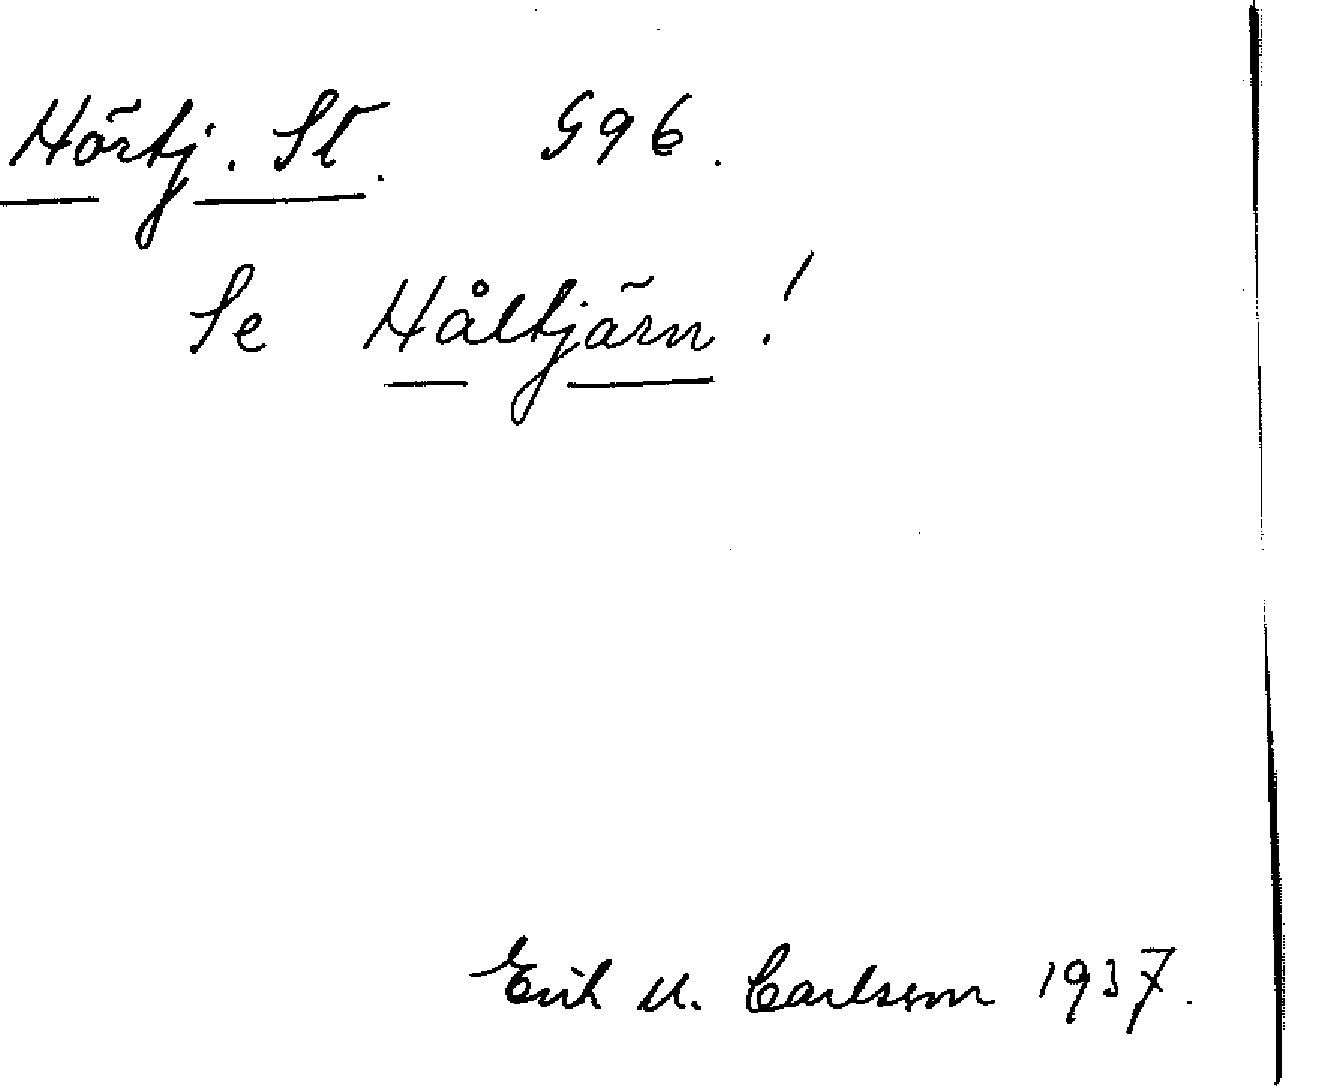 Hörtj. St. 596.
Se Håltjärn!
Erik U. Carlsson 1937.